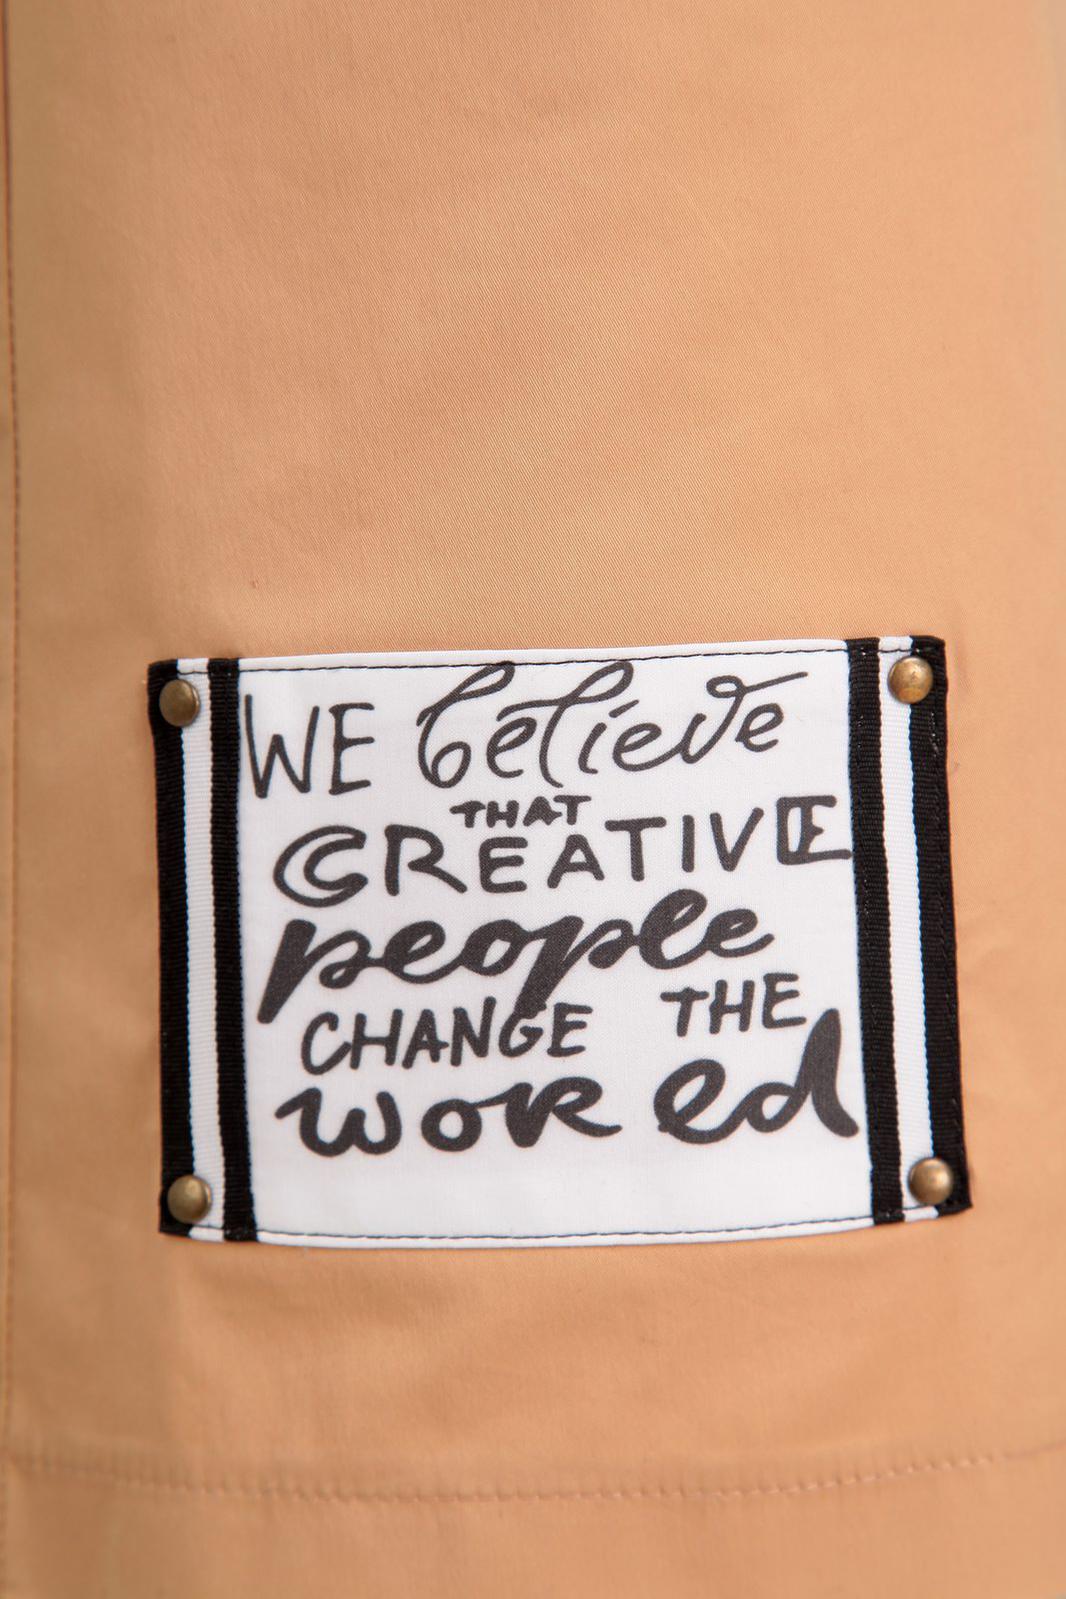 WE believe
THAT
CREATIVE
people
CHANGE THE
WORed